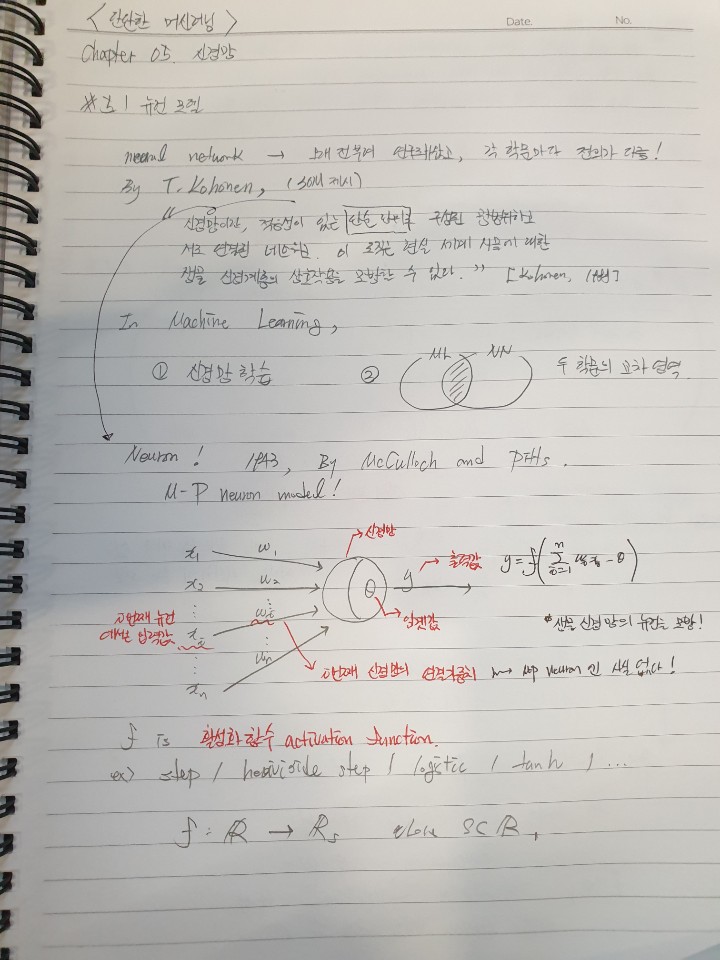 <단단한 머신러닝>
Date. No.
Chapter 05. 신경망
※ 5.1 뉴런 모델
neural network → 오래 전부터 연구해왔고, 각 학문마다 정의가 다름!
By T. Kohonen, (SOM 제시)
"신경망이란, 적응성이 있는 단순 단위로 구성된 광범위하고
서로 연결된 네트워크. 이 조직은 현실 세계 사물에 대한
생물 신경계통의 상호작용을 모방할 수 있다." [Kohonen, 1988]
In Machine Learning,
① 신경망 학습 ② ML NN 두 학문의 교차 영역.
Neuron! 1943, By McCulloch and Pitts.
M-P neuron model!
x₁ w₁ 신경망
x₂ w₂ θ y 출력값 y = f(∑ᵢ₌₁ⁿ wᵢxᵢ - θ)
⋮ ⋮ 임곗값 * 생물 신경망의 뉴런을 모방!
i번째 뉴런
에서온 입력값 xᵢ wᵢ
⋮ ⋮ i번째 신경망의 연결가중치 neuron 인 사실 없다!
xₙ wₙ
f is 활성화 함수 activation function.
ex) step / heaviside step / logistic / tanh / ...
f : ℝ → ℝs S⊂ℝ,